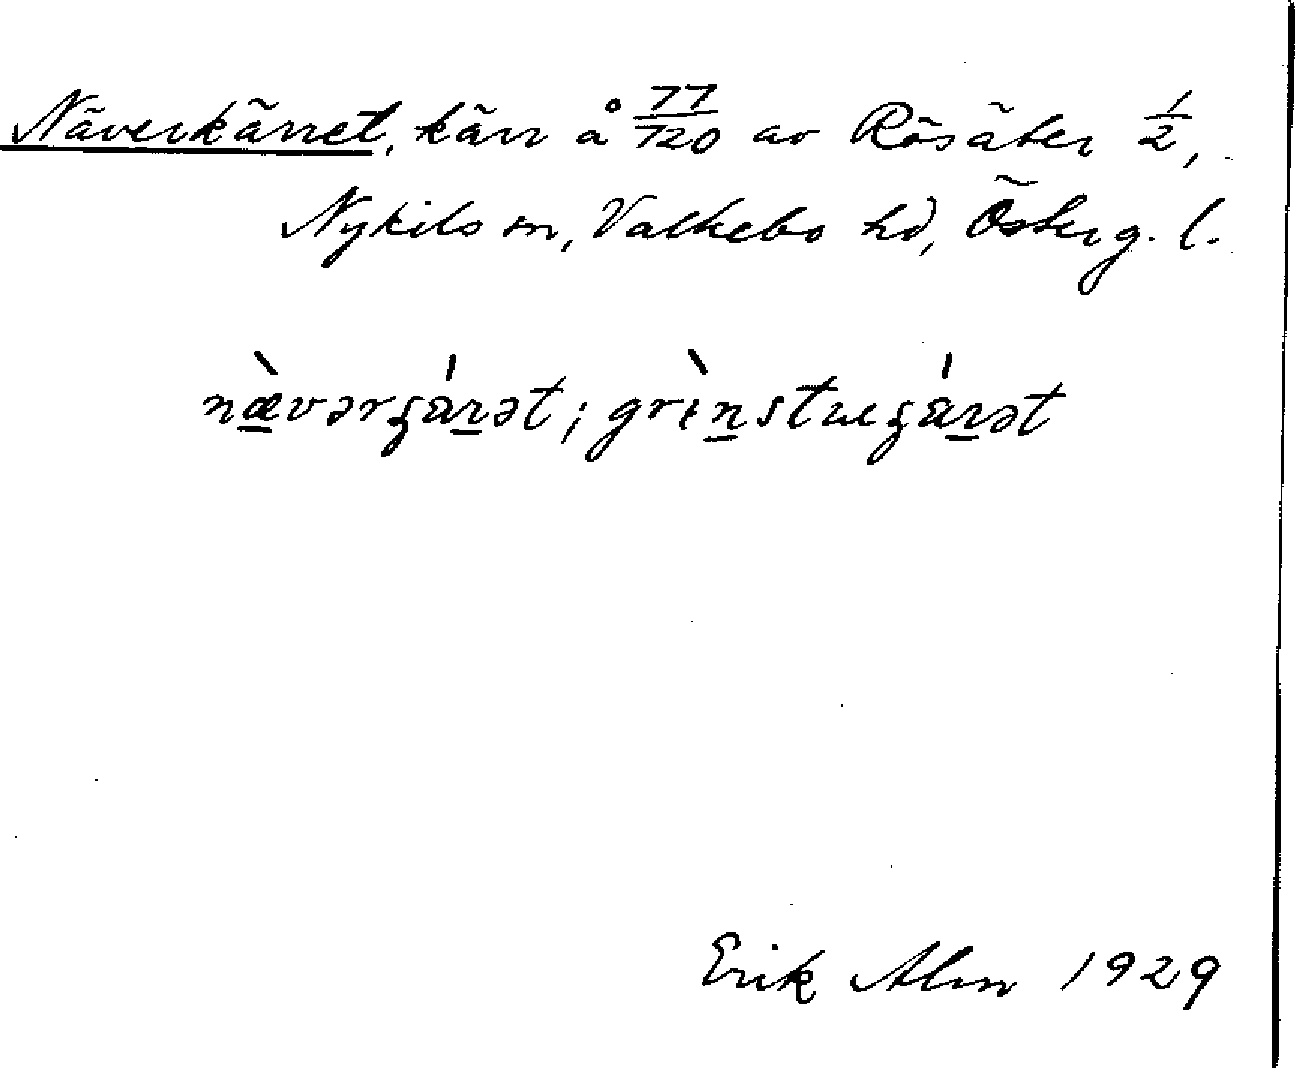 Näverkärret, kärr å 77/120 av Rösäter 1/2,
Nykils sn, Valkebo hd, Österg. l.
næ̀vərʒár̲ət; grɩ̀n̲stɯʒár̲ət
Erik Alm 1929